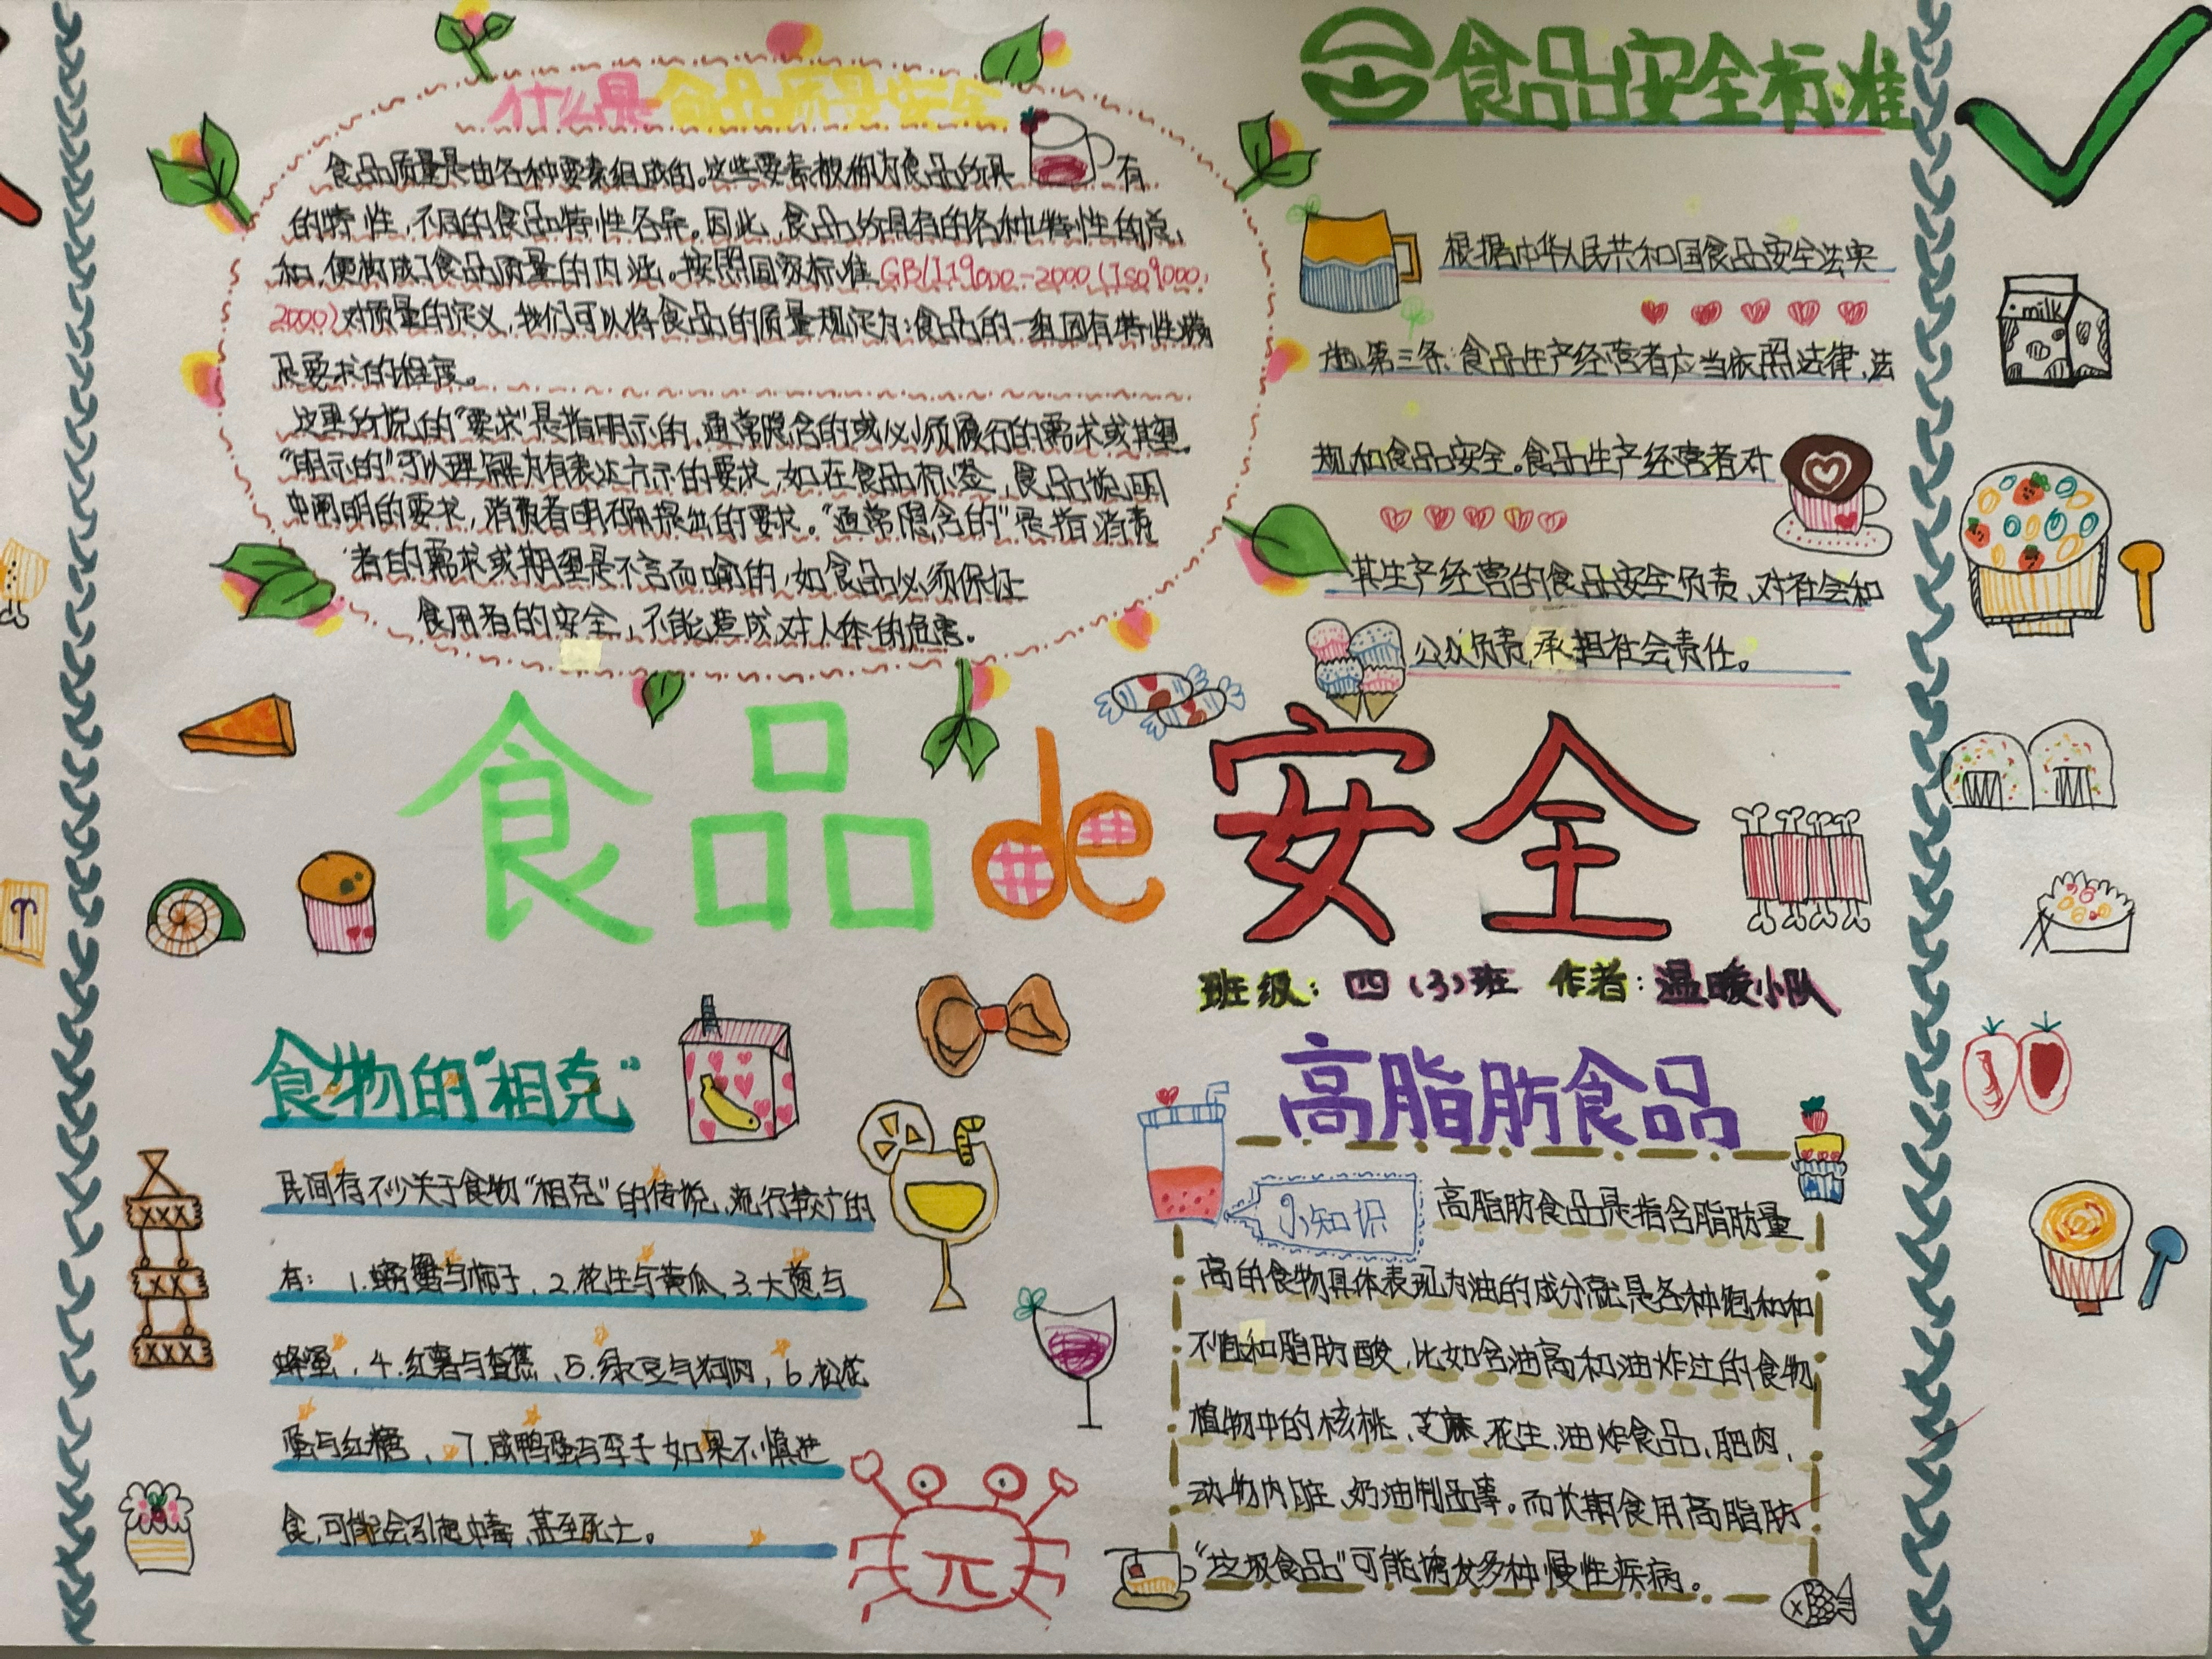 什么是食品质量安全
食品质量是由各种要素组成的。这些要素被称为食品所具有
的特性，不同的食品特性各异。因此，食品所具有的各种特性的总
和，便构成了食品质量的内涵。按照国家标准GB/T19000-2000(ISo9000:
2000)对质量的定义，我们可以将食品的质量规定为：食品的一组固有特性满
足要求的程度。
这里所说的“要求”是指明示的，通常隐含的或必须履行的需求或其望。
“明示的”可以理解为有表达方示的要求，如在食品标签，食品说明
中阐明的要求，消费者明确提出的要求。“通常隐含的”是指消费
者的需求或期望是不言而喻的，如食品必须保证
食用者的安全，不能造成对人体的危害。
食品安全标准
根据中华人民共和国食品安全法实
施，第三条：食品生产经营者应当依照法律，法
规和食品安全。食品生产经营者对
其生产经营的食品安全负责，对社会和
公众负责，承担社会责任。
milk
食品de安全
班级：四（3）班 作者：温暖小队
食物的“相克”
民间有不少关于食物“相克”的传说，流行较广的
有：1.螃蟹与柿子，2.花生与黄瓜 3.大葱与
蜂蜜，4.红薯与香蕉、5.绿豆与狗肉，6.松花
蛋与红糖，7.咸鸭蛋与李子 如果不慎进
食，可能会引起中毒，甚至死亡。
高脂肪食品
小知识
高脂肪食品是指含脂肪量
高的食物具体表现为油的成分就是各种饱和和
不饱和脂肪酸，比如含油高和油炸过的食物
植物中的核桃、芝麻、花生，油炸食品、肥肉，
动物内脏、奶油制品等。而长期食用高脂肪
“垃圾食品”可能诱发多种慢性疾病。